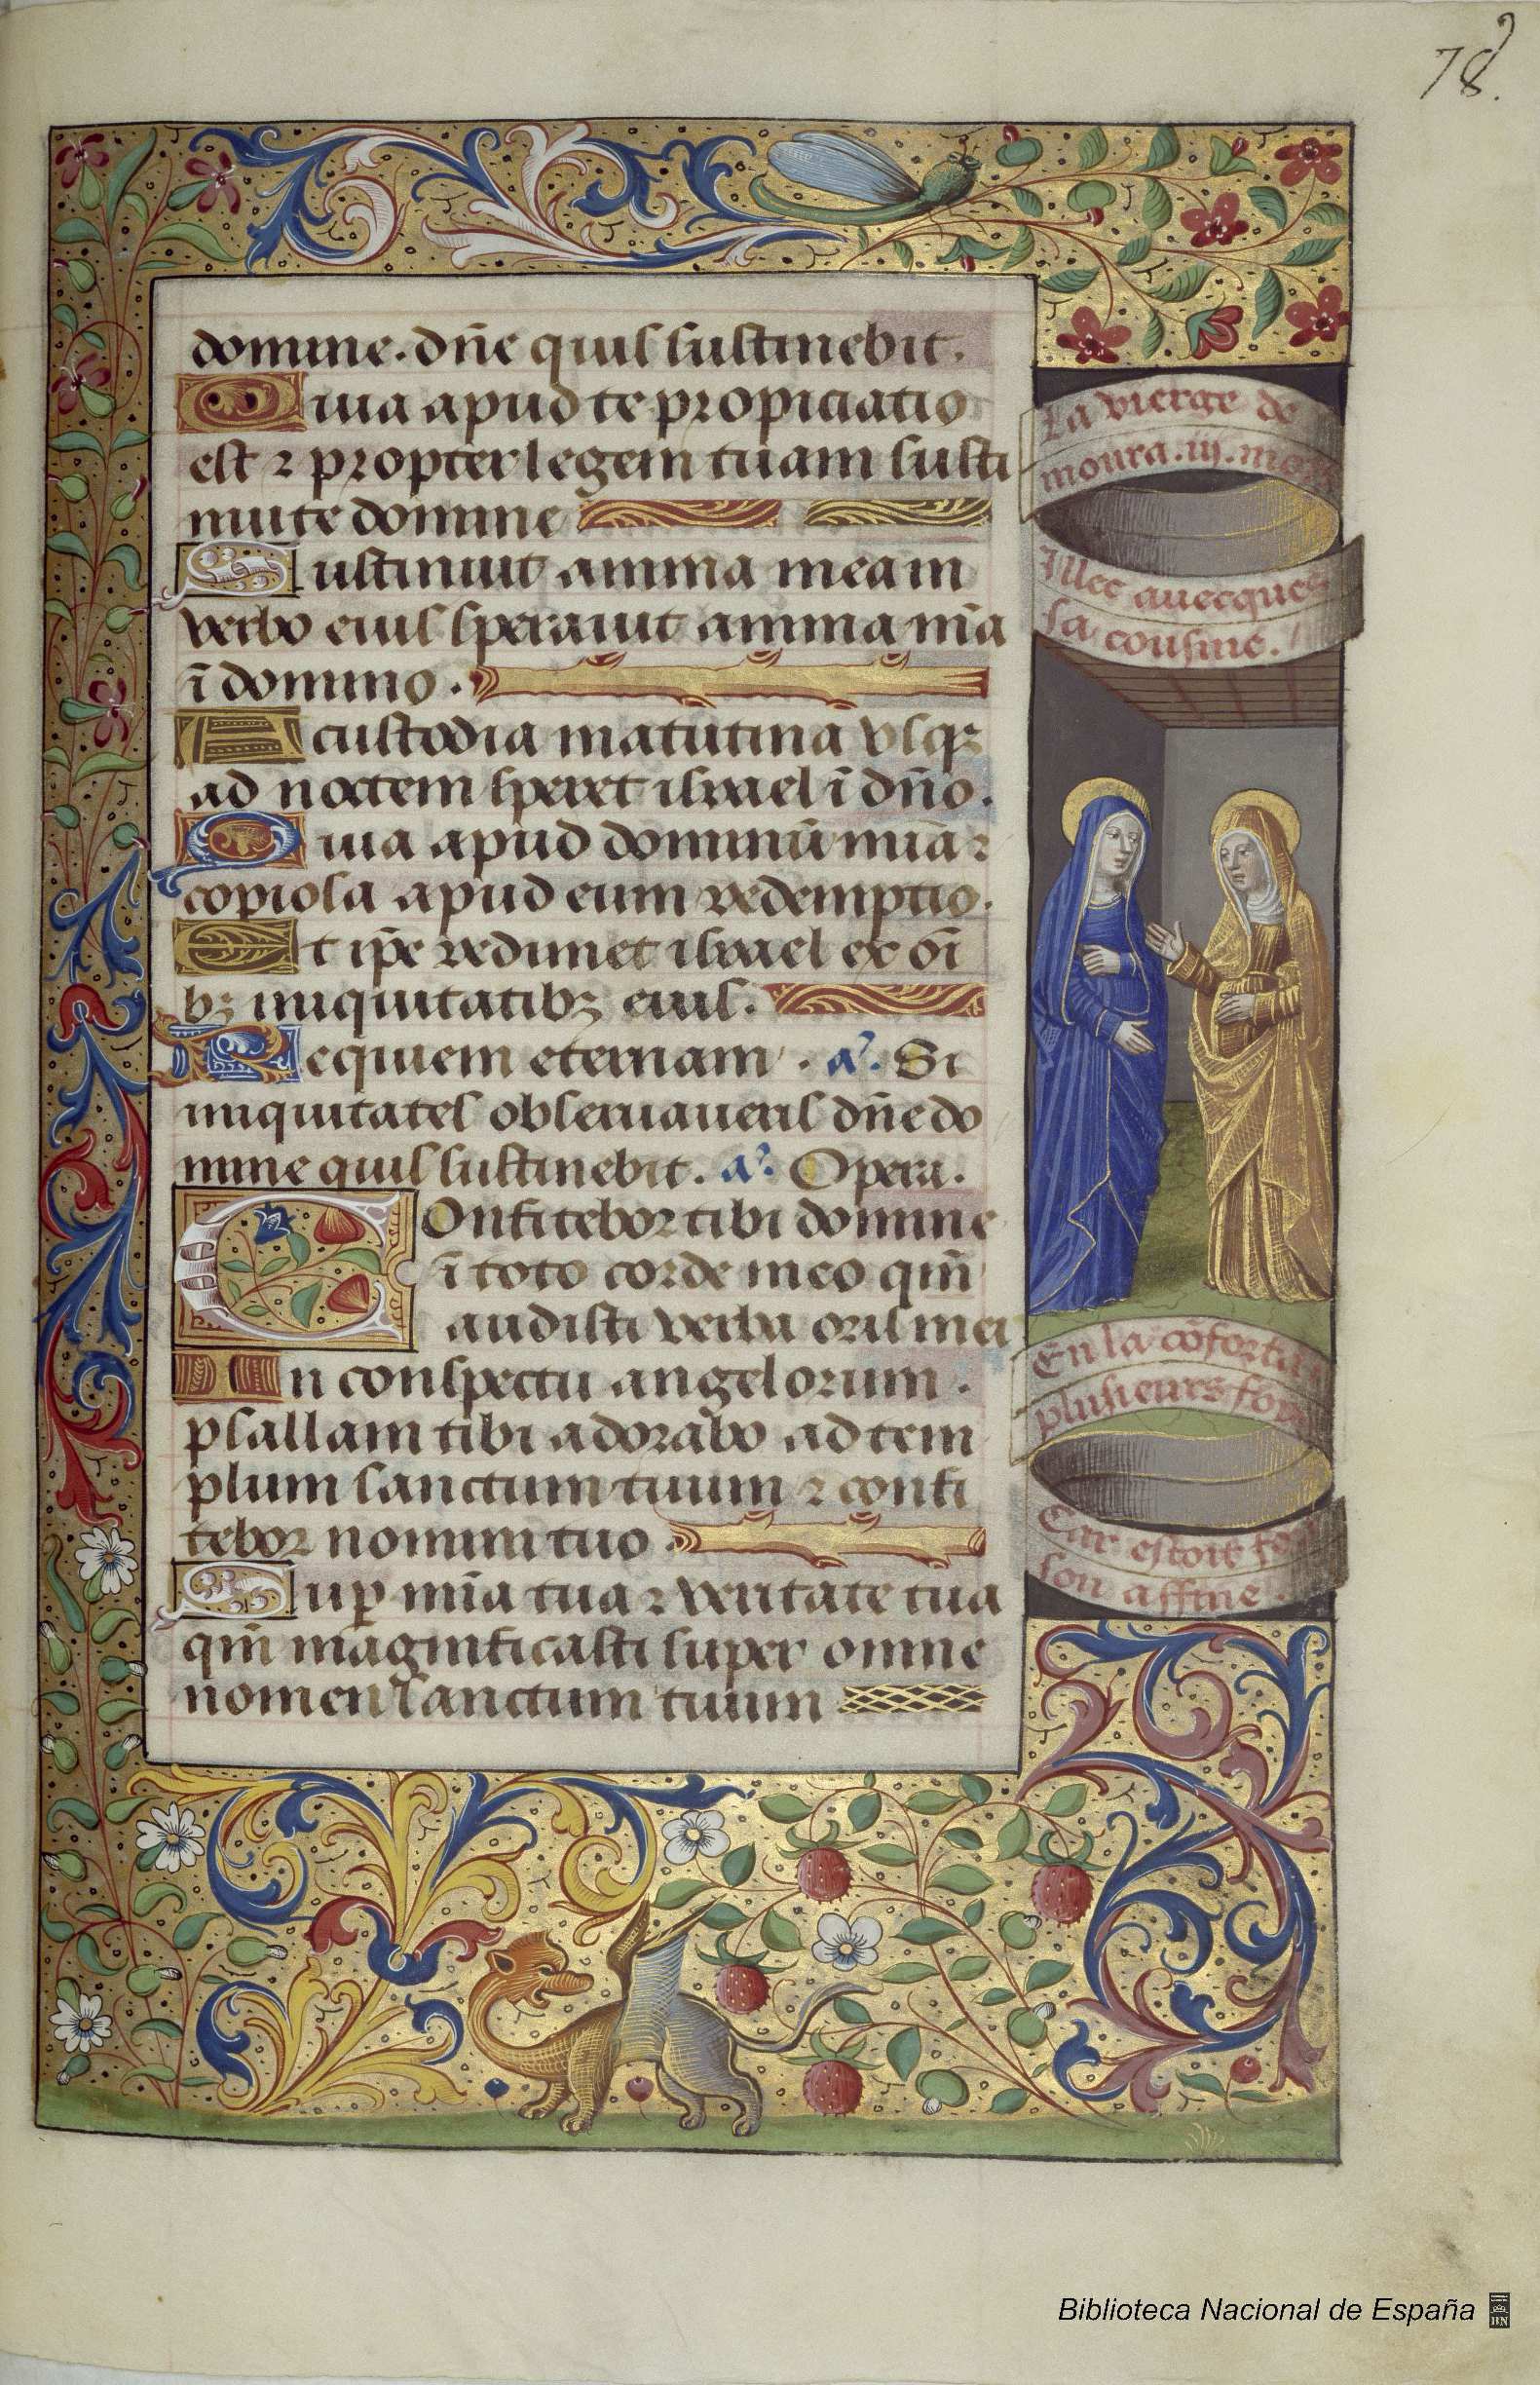 78.
domine. dñe quis sustinebit.
Quia apud te propiciatio
est ⁊ propter legem tuam susti
nui te domine
Sustinuit anima mea in
verbo eius speravit anima mẽa
ĩ domino.
A custodia matutina vsqꝫ
ad noctem speret israel ĩ dño.
Quia apud dominũ mĩa ⁊
copiosa apud eum redemptio.
Et ip̃e redimet israel ex oĩ
bꝫ iniquitatibꝫ eius.
Requiem eternam. añ. Si
iniquitates observaveris dñe do
mine quis sustinebit. añ. Opera.
Confitebor tibi domine
ĩ toto corde meo qm̃
audisti verba oris mei
In conspectu angelorum.
psallam tibi adorabo ad tem
plum sanctum tuum ⁊ confi
tebor nomini tuo.
Suꝑ mĩa tua ⁊ veritate tua
qm̃ magnificasti super omne
nomen sanctum tuum
La vierge de
moura .iij. moys
Illec avecques
sa cousine.
En la cõfortãt
plusieurs foys
Car estoit fort
son affine.
Biblioteca Nacional de España